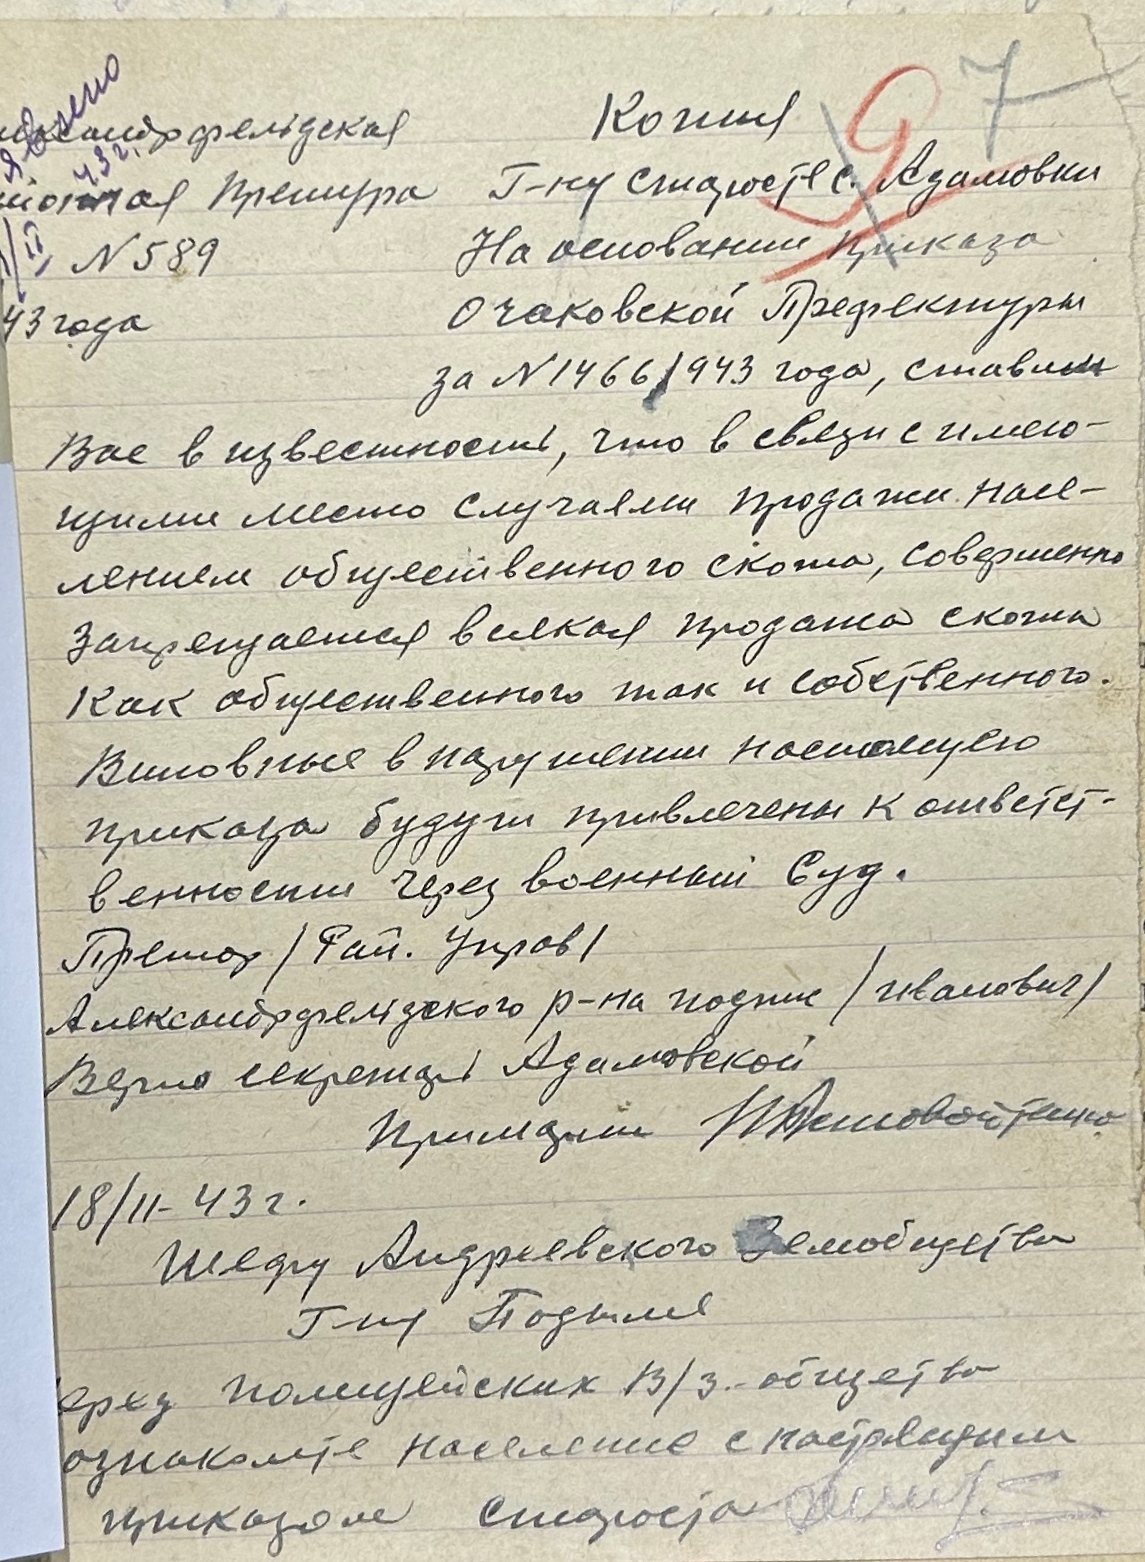 7
9
Копия
лександрфельдская
йонная Претура
N 589
43 года
Г-ну Старосте с. Адамовки
На основании приказа
Очаковской Префектуры
за N 1466/943 года, ставлю
Вас в известность, что в связи с имею-
щими место случаями продажи насе-
лением общественного скота, совершенно
Запрещается всякая продажа скота
Как общественного так и собственного.
Виновные в нарушении настоящего
приказа будут привлечены к ответст-
венности через военный Суд.
Претор / Рай. Управ /
Александрфельдского р-на подпис / Иванович /
Верно секретарь Адамовской
Примарии
18/II-43 г.
Шефу Андреевского Земобщества
Г-ну Подыма
ерез полицейских В/з. общества
ознакомте население с настоящим
приказом Староста